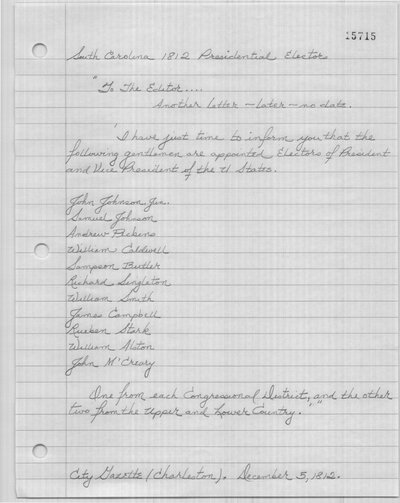 15715
South Carolina 1812 Presidential Electors
"To The Editor....
Another letter - later - no date.
'I have just time to inform you that the
following gentlemen are appointed Electors of President
and Vice President of the U. States.
John Johnson Jun.
Samuel Johnson
Andrew Pickens
William Caldwell
Sampson Butler
Richard Singleton
William Smith
James Campbell
Rueben Stark
William Alston
John McCreary
One from each Congressional District, and the other
two from the Upper and Lower Country.'"
City Gazette (Charleston). December 5, 1812.